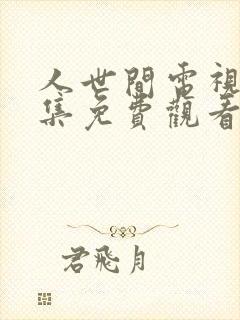 人世間電視
集免費觀看
君飛月